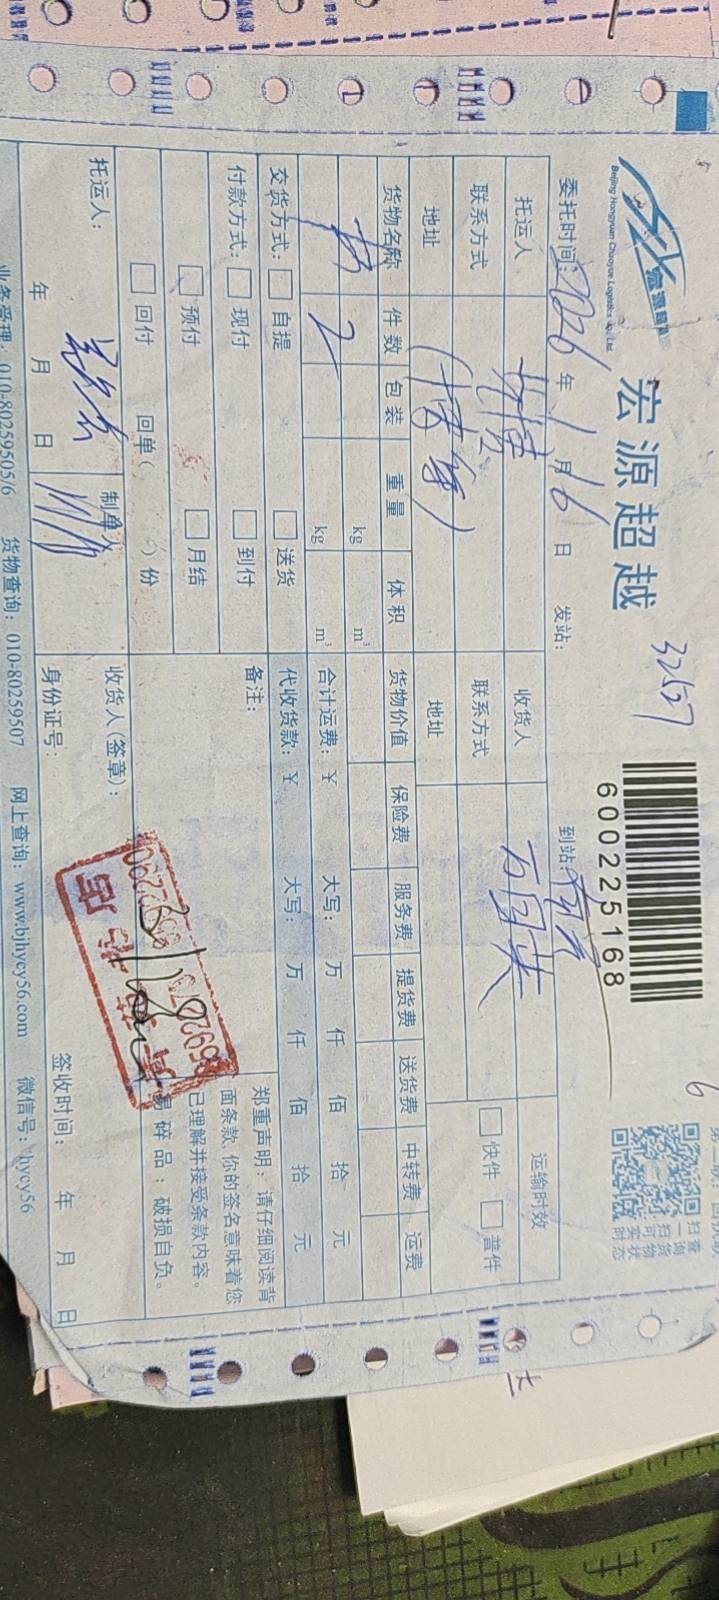 宏源超越
Beijing Hongyuan Chaoyue Logistics Co., Ltd.
32527
600225168
委托时间：2026年1月16日 发站： 到站：
托运人 收货人 运输时效
联系方式 联系方式 快件 普件
地址 地址
货物名称 件数 包装 重量 体积 货物价值 保险费 服务费 提货费 送货费 中转费 运费
书 2 kg m³
kg m³ 合计运费：¥ 大写： 万 仟 佰 拾 元
交货方式： 自提 送货 代收货款：¥ 大写： 万 仟 佰 拾 元
付款方式： 现付 到付 备注：
预付 月结
回付 回单( )份
郑重声明：请仔细阅读背
面条款，你的签名意味着您
已理解并接受条款内容。
易碎品：破损自负。
托运人： 制单人 收货人(签章)：
年 月 日 身份证号： 签收时间： 年 月 日
业务受理：010-80259505/6 货物查询：010-80259507 网上查询：www.bjhycy56.com 微信号：hycy56